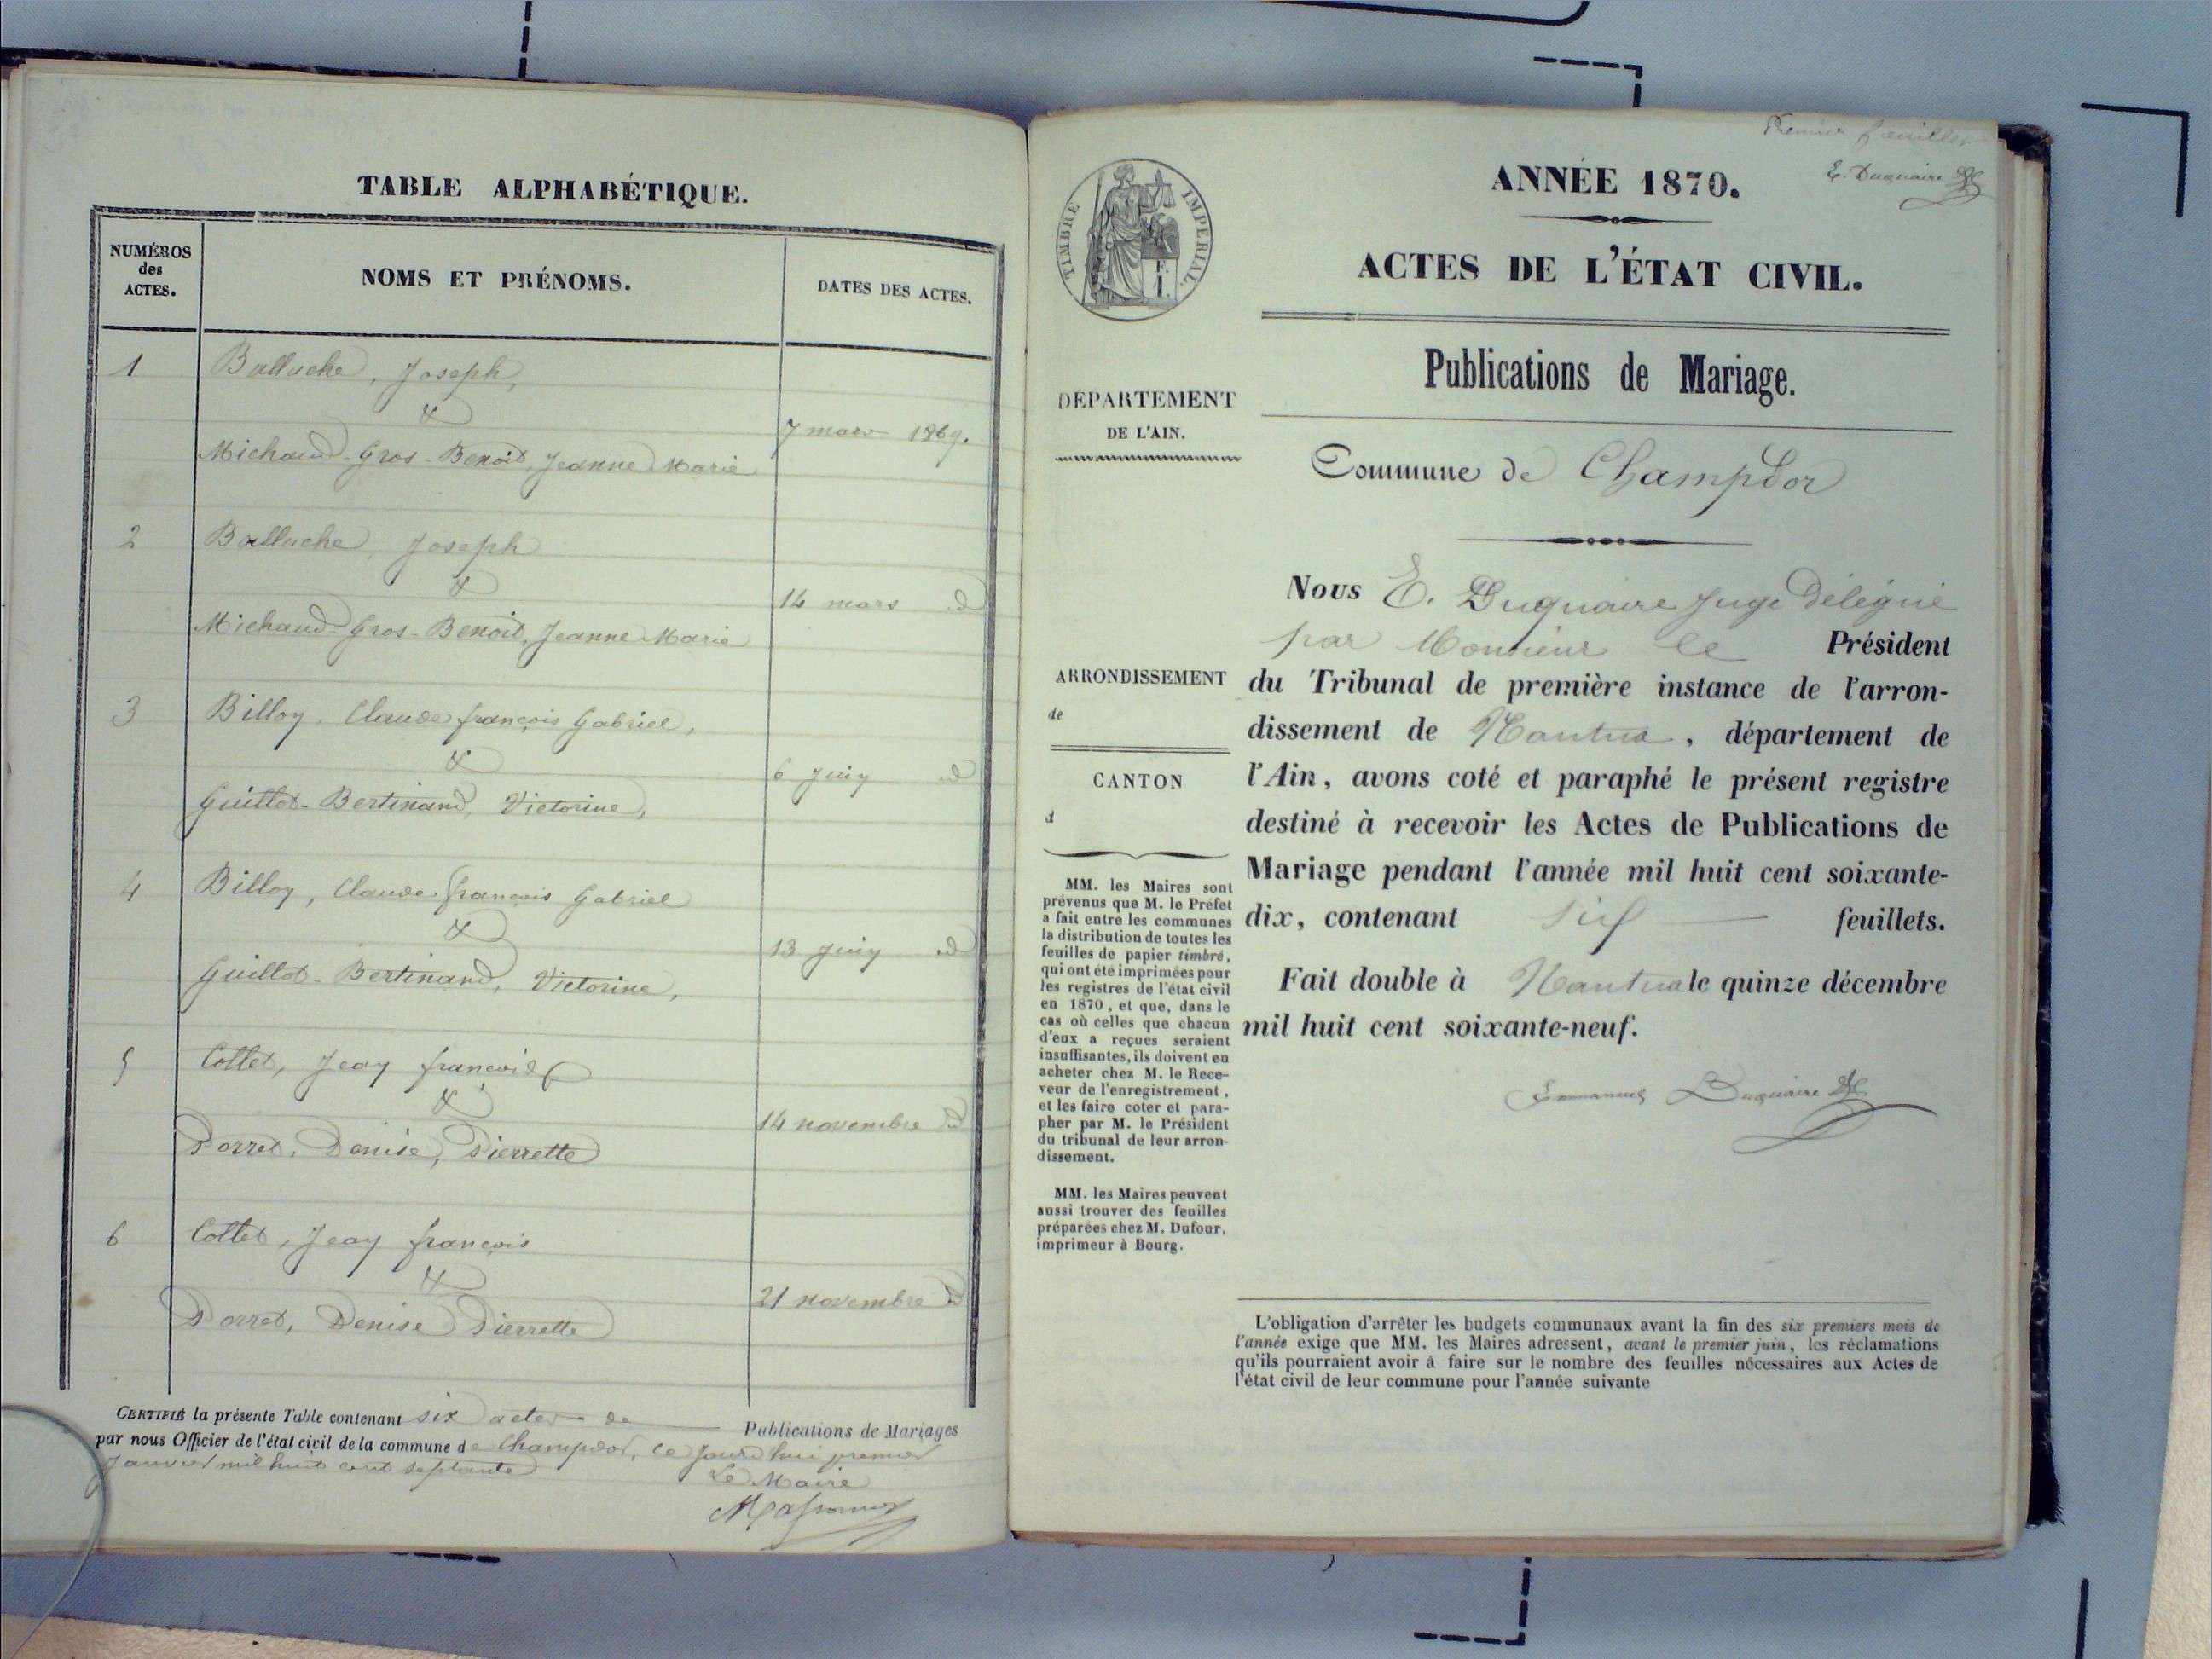 TABLE ALPHABÉTIQUE.
NUMÉROS
des
ACTES.
NOMS ET PRÉNOMS.
DATES DES ACTES.
1 Balluche, Joseph,
&
7 mars 1869.
Michaud-Gros-Benoit, Jeanne Marie
2 Balluche, Joseph
&
14 mars d
Michaud-Gros-Benoit, Jeanne Marie
3 Billoy, Claude françois Gabriel,
&
6 Juin d
Guillot-Bertinand, Victorine,
4 Billoy, Claude françois Gabriel
&
13 Juin d
Guillot-Bertinand, Victorine,
5 Collet, Jean françois
&
14 novembre d
Porret, Denise, Pierrette
6 Collet, Jean françois
&
21 novembre d
Porret, Denise Pierrette
CERTIFIÉ la présente Table contenant six actes de Publications de Mariages
par nous Officier de l'état civil de la commune de Champdor, ce jourd'hui premier
Janvier mil huit cent septante
Le Maire
Premier feuillet
E. Duquaire
TIMBRE IMPÉRIAL.
ANNÉE 1870.
ACTES DE L'ÉTAT CIVIL.
Publications de Mariage.
DÉPARTEMENT
DE L'AIN.
Commune de Champdor
Nous E. Duquaire Juge Délégué
par Monsieur le Président
ARRONDISSEMENT
de
CANTON
d
du Tribunal de première instance de l'arron-
dissement de Nantua, département de
l'Ain, avons coté et paraphé le présent registre
destiné à recevoir les Actes de Publications de
Mariage pendant l'année mil huit cent soixante-
dix, contenant six feuillets.
Fait double à Nantua le quinze décembre
mil huit cent soixante-neuf.
Emmanuel Duquaire
MM. les Maires sont
prévenus que M. le Préfet
a fait entre les communes
la distribution de toutes les
feuilles de papier timbré,
qui ont été imprimées pour
les registres de l'état civil
en 1870, et que, dans le
cas où celles que chacun
d'eux a reçues seraient
insuffisantes, ils doivent en
acheter chez M. le Rece-
veur de l'enregistrement,
et les faire coter et para-
pher par M. le Président
du tribunal de leur arron-
dissement.
MM. les Maires peuvent
aussi trouver des feuilles
préparées chez M. Dufour,
imprimeur à Bourg.
L'obligation d'arrêter les budgets communaux avant la fin des six premiers mois de
l'année exige que MM. les Maires adressent, avant le premier juin, les réclamations
qu'ils pourraient avoir à faire sur le nombre des feuilles nécessaires aux Actes de
l'état civil de leur commune pour l'année suivante